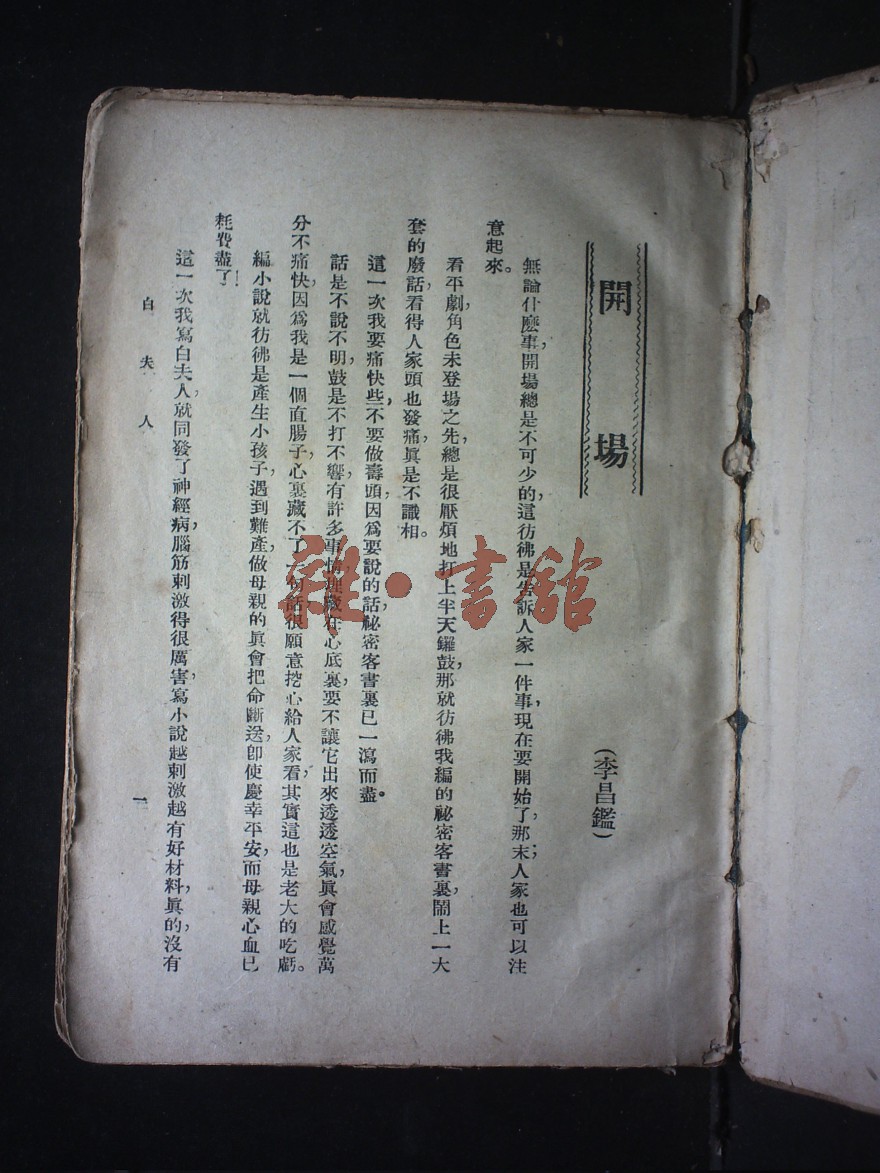 開場
(李昌鑑)
無論什麽事，開場總是不可少的，這彷彿是告訴人家一件事，現在要開始了，那末，人家也可以注
意起來。
看平劇，角色未登場之先，總是很厭煩地打上半天鑼鼓，那就彷彿我編的祕密客書裏，鬧上一大
套的廢話，看得人家頭也發痛，眞是不識相。
這一次我要痛快些，不要做壽頭，因爲要說的話，祕密客書裏已一瀉而盡。
話是不說不明，鼓是不打不響，有許多事情埋藏在心底裏，要不讓它出來透透空氣，眞會感覺萬
分不痛快，因爲我是一個直腸子，心裏藏不了一句話，很願意挖心給人家看，其實這也是老大的吃虧。
編小說就彷彿是產生小孩子，遇到難產，做母親的眞會把命斷送，卽使慶幸平安，而母親心血已
耗費盡了！
這一次我寫白夫人，就同發了神經病，腦筋刺激得很厲害，寫小說越刺激越有好材料，眞的，沒有
白夫人
一
雜·書館